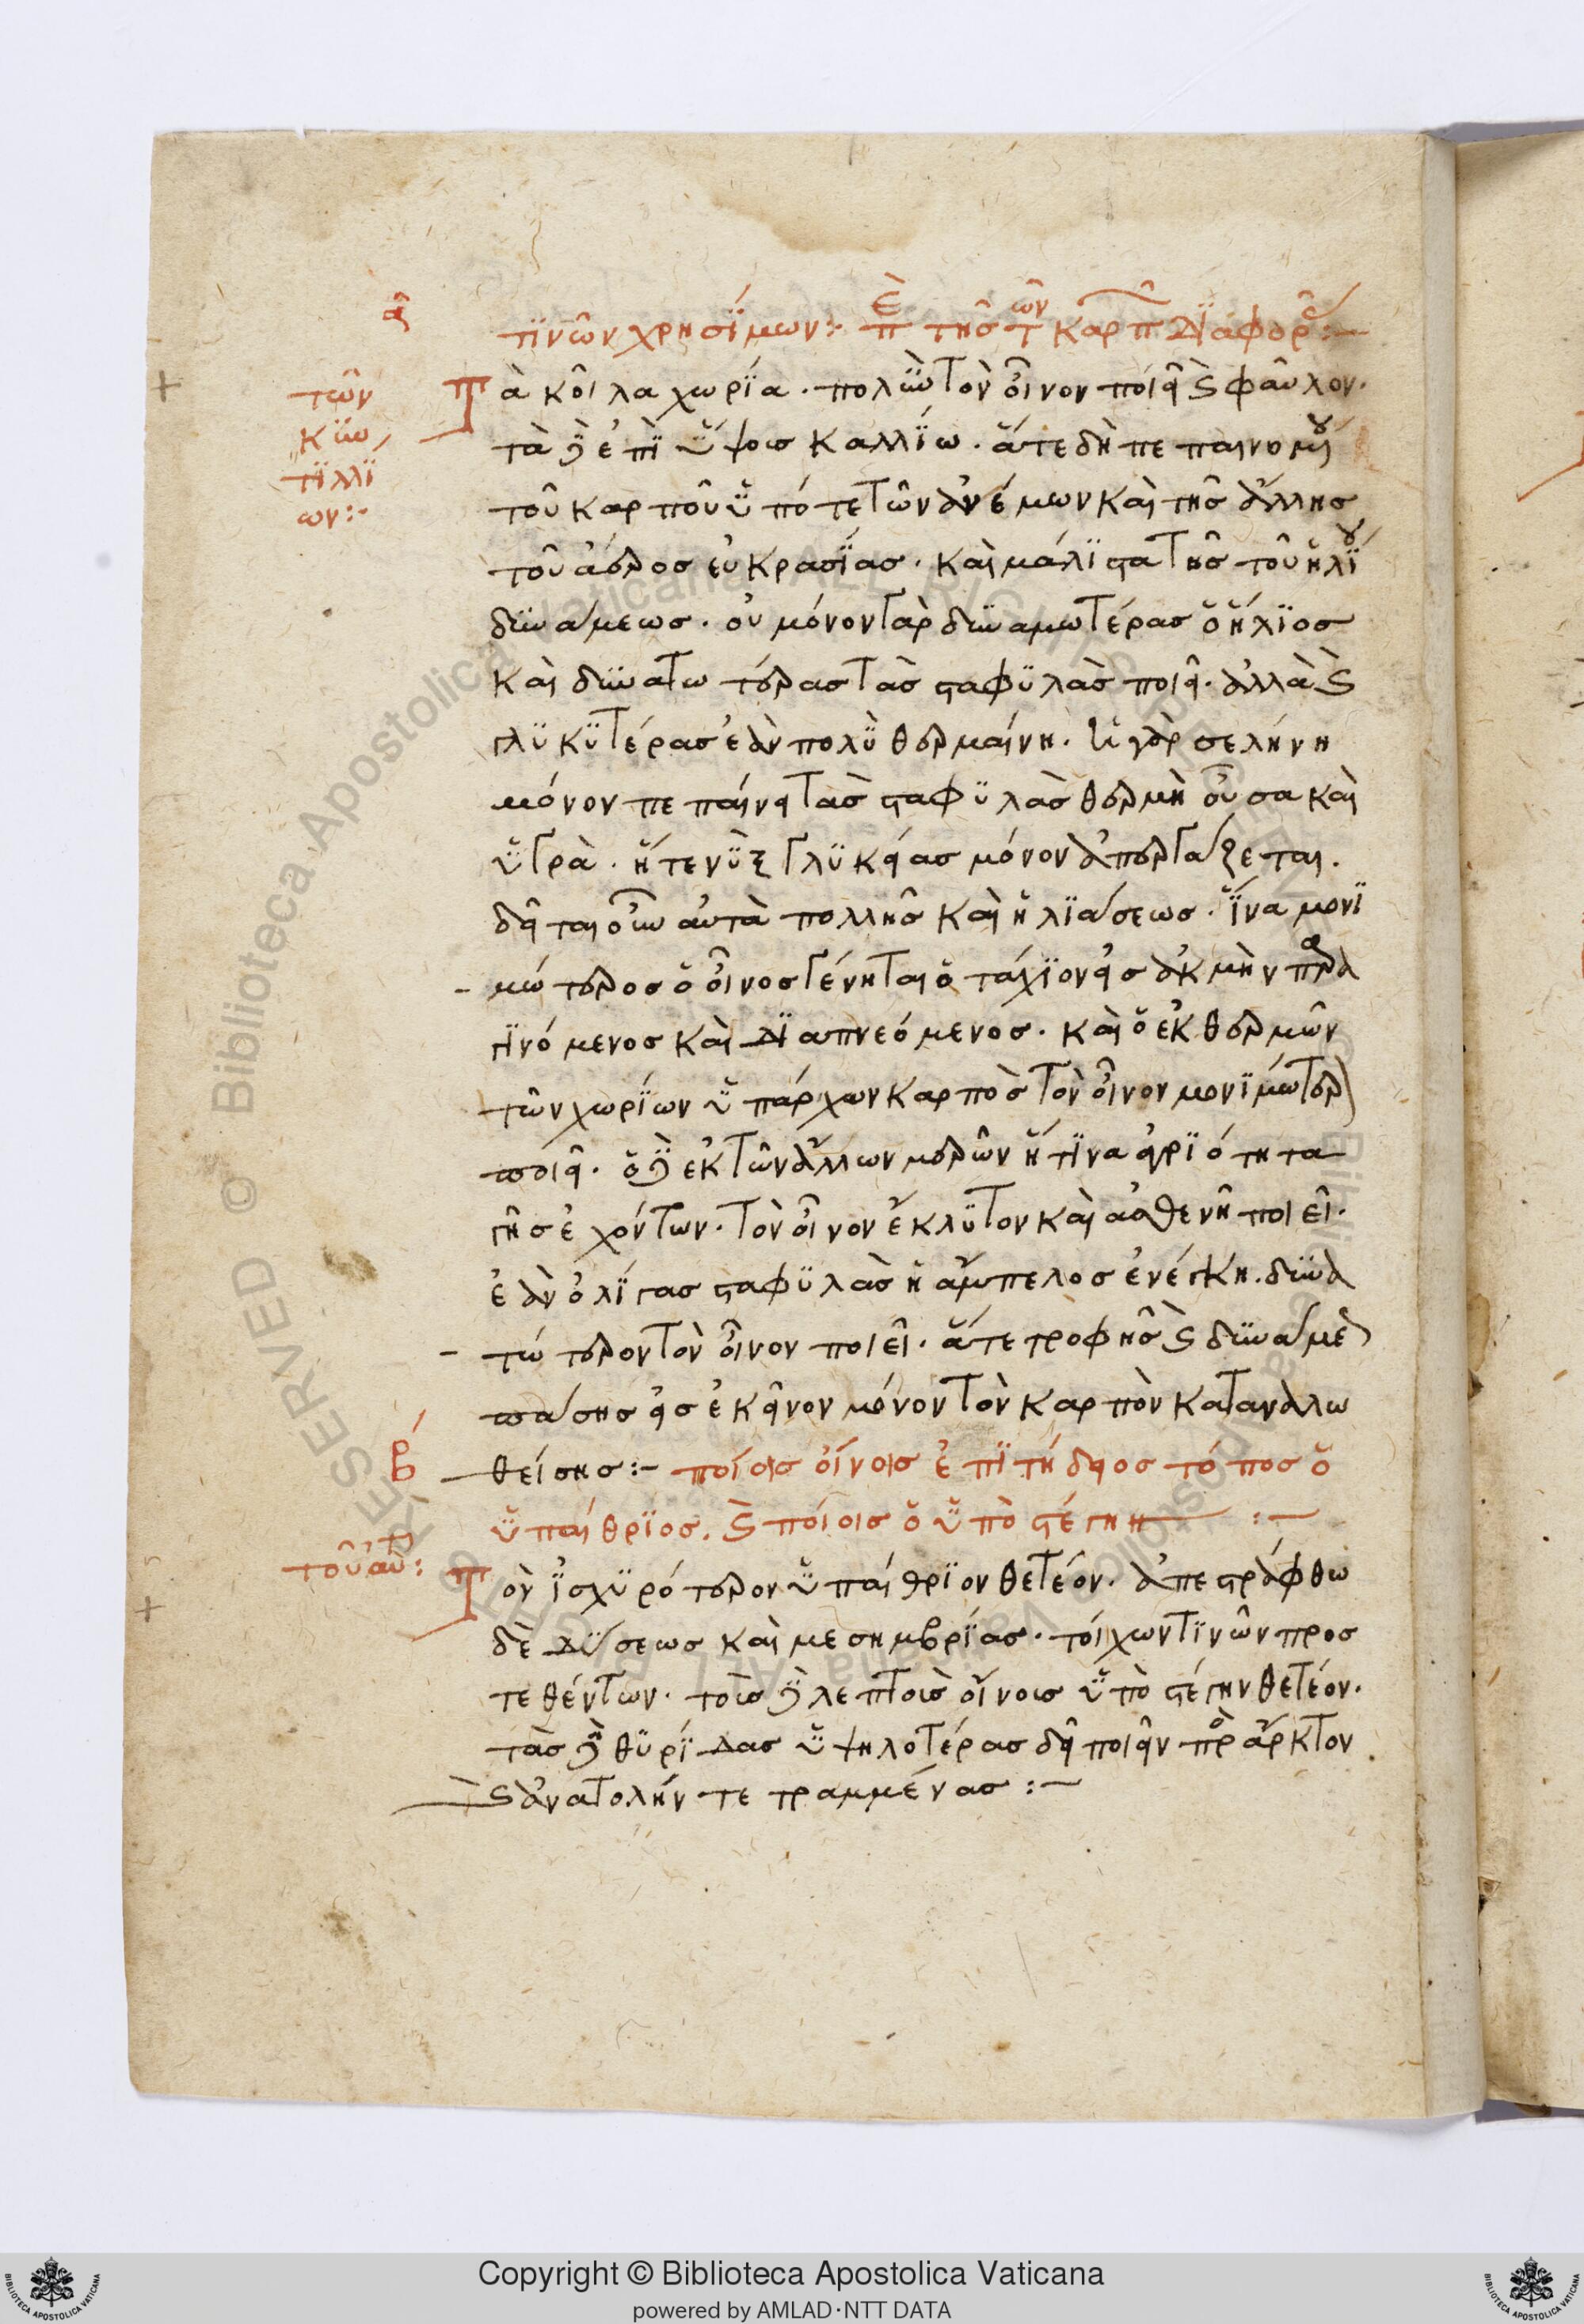 α
τινῶν χρησΐμων: περὶ τῆς τῶν καρπῶν διαφορᾶς:
τῶν
Κυϊν
τιλλΐ
ων:
Τὰ κοῖλα χωρΐα. πολὺν τὸν οἶνον ποιεῖ καὶ φαῦλον.
τὰ δὲ ἐπὶ ὕψοις καλλΐω. ἅτε δὴ πεπαινομένου
τοῦ καρποῦ ὑπό τε τῶν ἀνέμων καὶ τῆς ἄλλης
τοῦ ἀέρος εὐκρασΐας. καὶ μάλιστα τῆς τοῦ ἡλΐου
δυνάμεως. οὐ μόνον γὰρ δυναμωτέρας ὁ ἥλϊος
καὶ δυνατωτέρας τὰς σταφυλὰς ποιεῖ. ἀλλὰ καὶ
γλυκυτέρας ἐὰν πολὺ θερμαίνη. ἡ γὰρ σελήνη
μόνον πεπαίνει τὰς σταφυλὰς θερμὴ οὖσα καὶ
ὑγρὰ. ἥτε νὺξ γλυκείας μόνον ἀπεργάζεται.
δεῖται οὖν αὐτὰ πολλῆς καὶ ἡλϊάσεως. ἵνα μονϊ
μώτερος ὁ οἶνος γένηται ὁ τάχϊον εἰς ἀκμὴν παρα
γινόμενος καὶ διαπνεόμενος. καὶ ὁ ἐκ θερμῶν
τῶν χωρΐων ὑπάρχων καρπὸς τὸν οἶνον μονϊμώτερον
ποιεῖ. ὁ δὲ ἐκ τῶν ἄλλων μερῶν ἤ τινα ἀγρϊότητα
γῆς ἐχόντων. τὸν οἶνον ἔκλυτον καὶ ἀσθενῆ ποιεῖ.
ἐὰν ὀλΐγας σταφυλὰς ἡ ἄμπελος ἐνέγκη. δυνα
τώτερον τὸν οἶνον ποιεῖ. ἅτε τροφῆς καὶ δυνάμεως
πάσης εἰς ἐκεῖνον μόνον τὸν καρπὸν καταναλω
β
θείσης: ποίοις οἴνοις ἐπϊτήδειος τόπος ὁ
ὑπαίθρϊος. καὶ ποίοις ὁ ὑπὸ στέγην:
τοῦ αὐτοῦ:
Τὸν ϊσχυρότερον ὑπαίθρϊον θετέον. ἀπεστράφθω
δὲ δύσεως καὶ μεσημβρΐας. τοίχων τινῶν προσ
τεθέντων. τοῖς δὲ λεπτοῖς οἴνοις ὑπὸ στέγην θετέον.
τὰς δὲ θυρΐδας ὑψηλοτέρας δεῖ ποιεῖν πρὸς ἄρκτον
καὶ ἀνατολήν τετραμμένας:
Copyright © Biblioteca Apostolica Vaticana
powered by AMLAD·NTT DATA